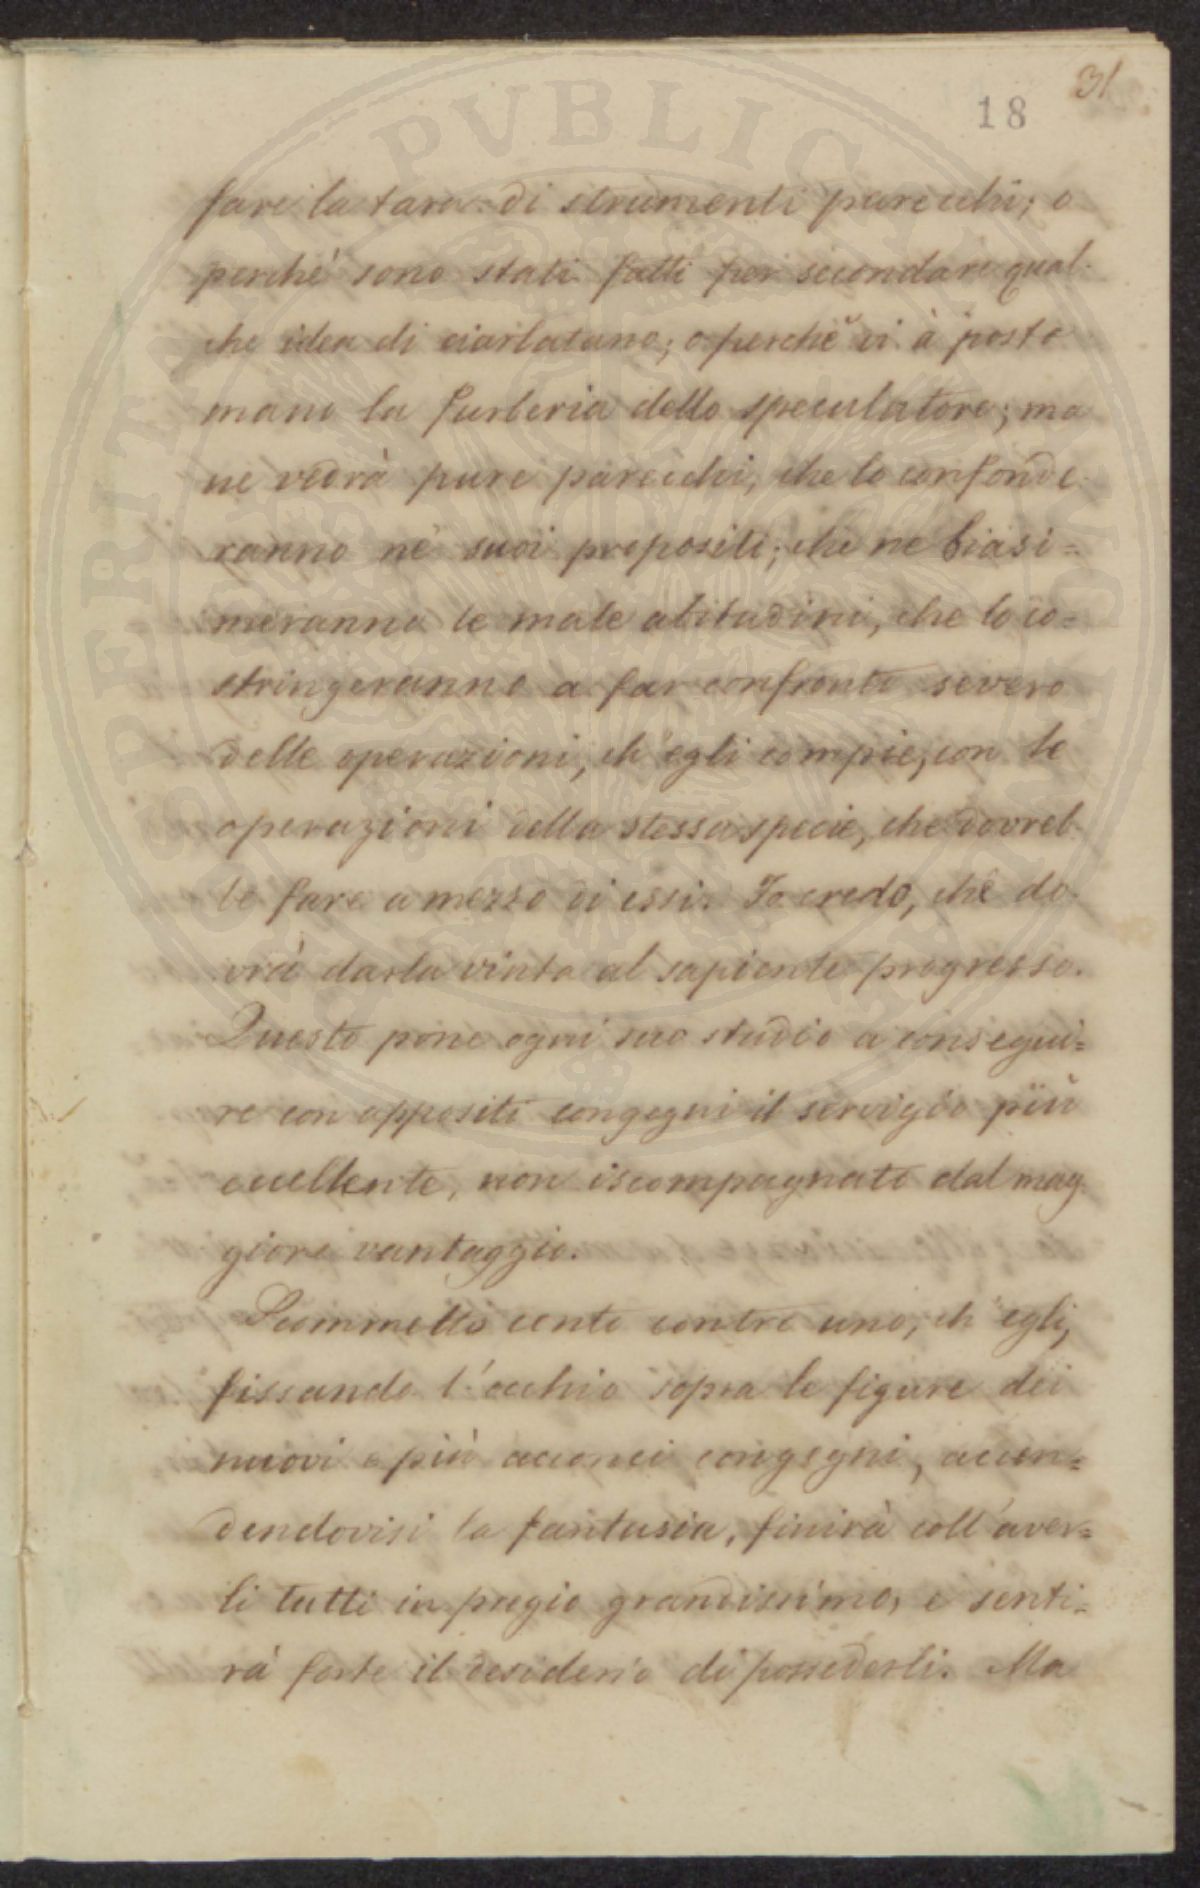 31
18
fare la tara di strumenti parecchi; o
perchè sono stati fatti per secondare qual-
che idea di ciarlatano; o perchè vi à posto
mano la furberia dello speculatore; ma
ne vedrà pure parecchi, che lo confonde-
ranno ne' suoi propositi; che ne biasi=
meranno le male abitudini, che lo co=
stringeranno a far confronto severo
delle operazioni, ch'egli compie, con le
operazioni della stessa specie, che dovreb-
be fare a mezzo di essi. Io credo, che do-
vrà darla vinta al sapiente progresso.
Questo pone ogni suo studio a consegui=
re con appositi congegni il servigio più
eccellente, non iscompagnato dal mag-
giore vantaggio.
Scommetto cento contro uno, ch'egli,
fissando l'occhio sopra le figure dei
nuovi e più acconci congegni, accen=
dendovisi la fantasia, finirà coll'aver=
li tutti in pregio grandissimo, e senti=
rà forte il desiderio di possederli. Ma